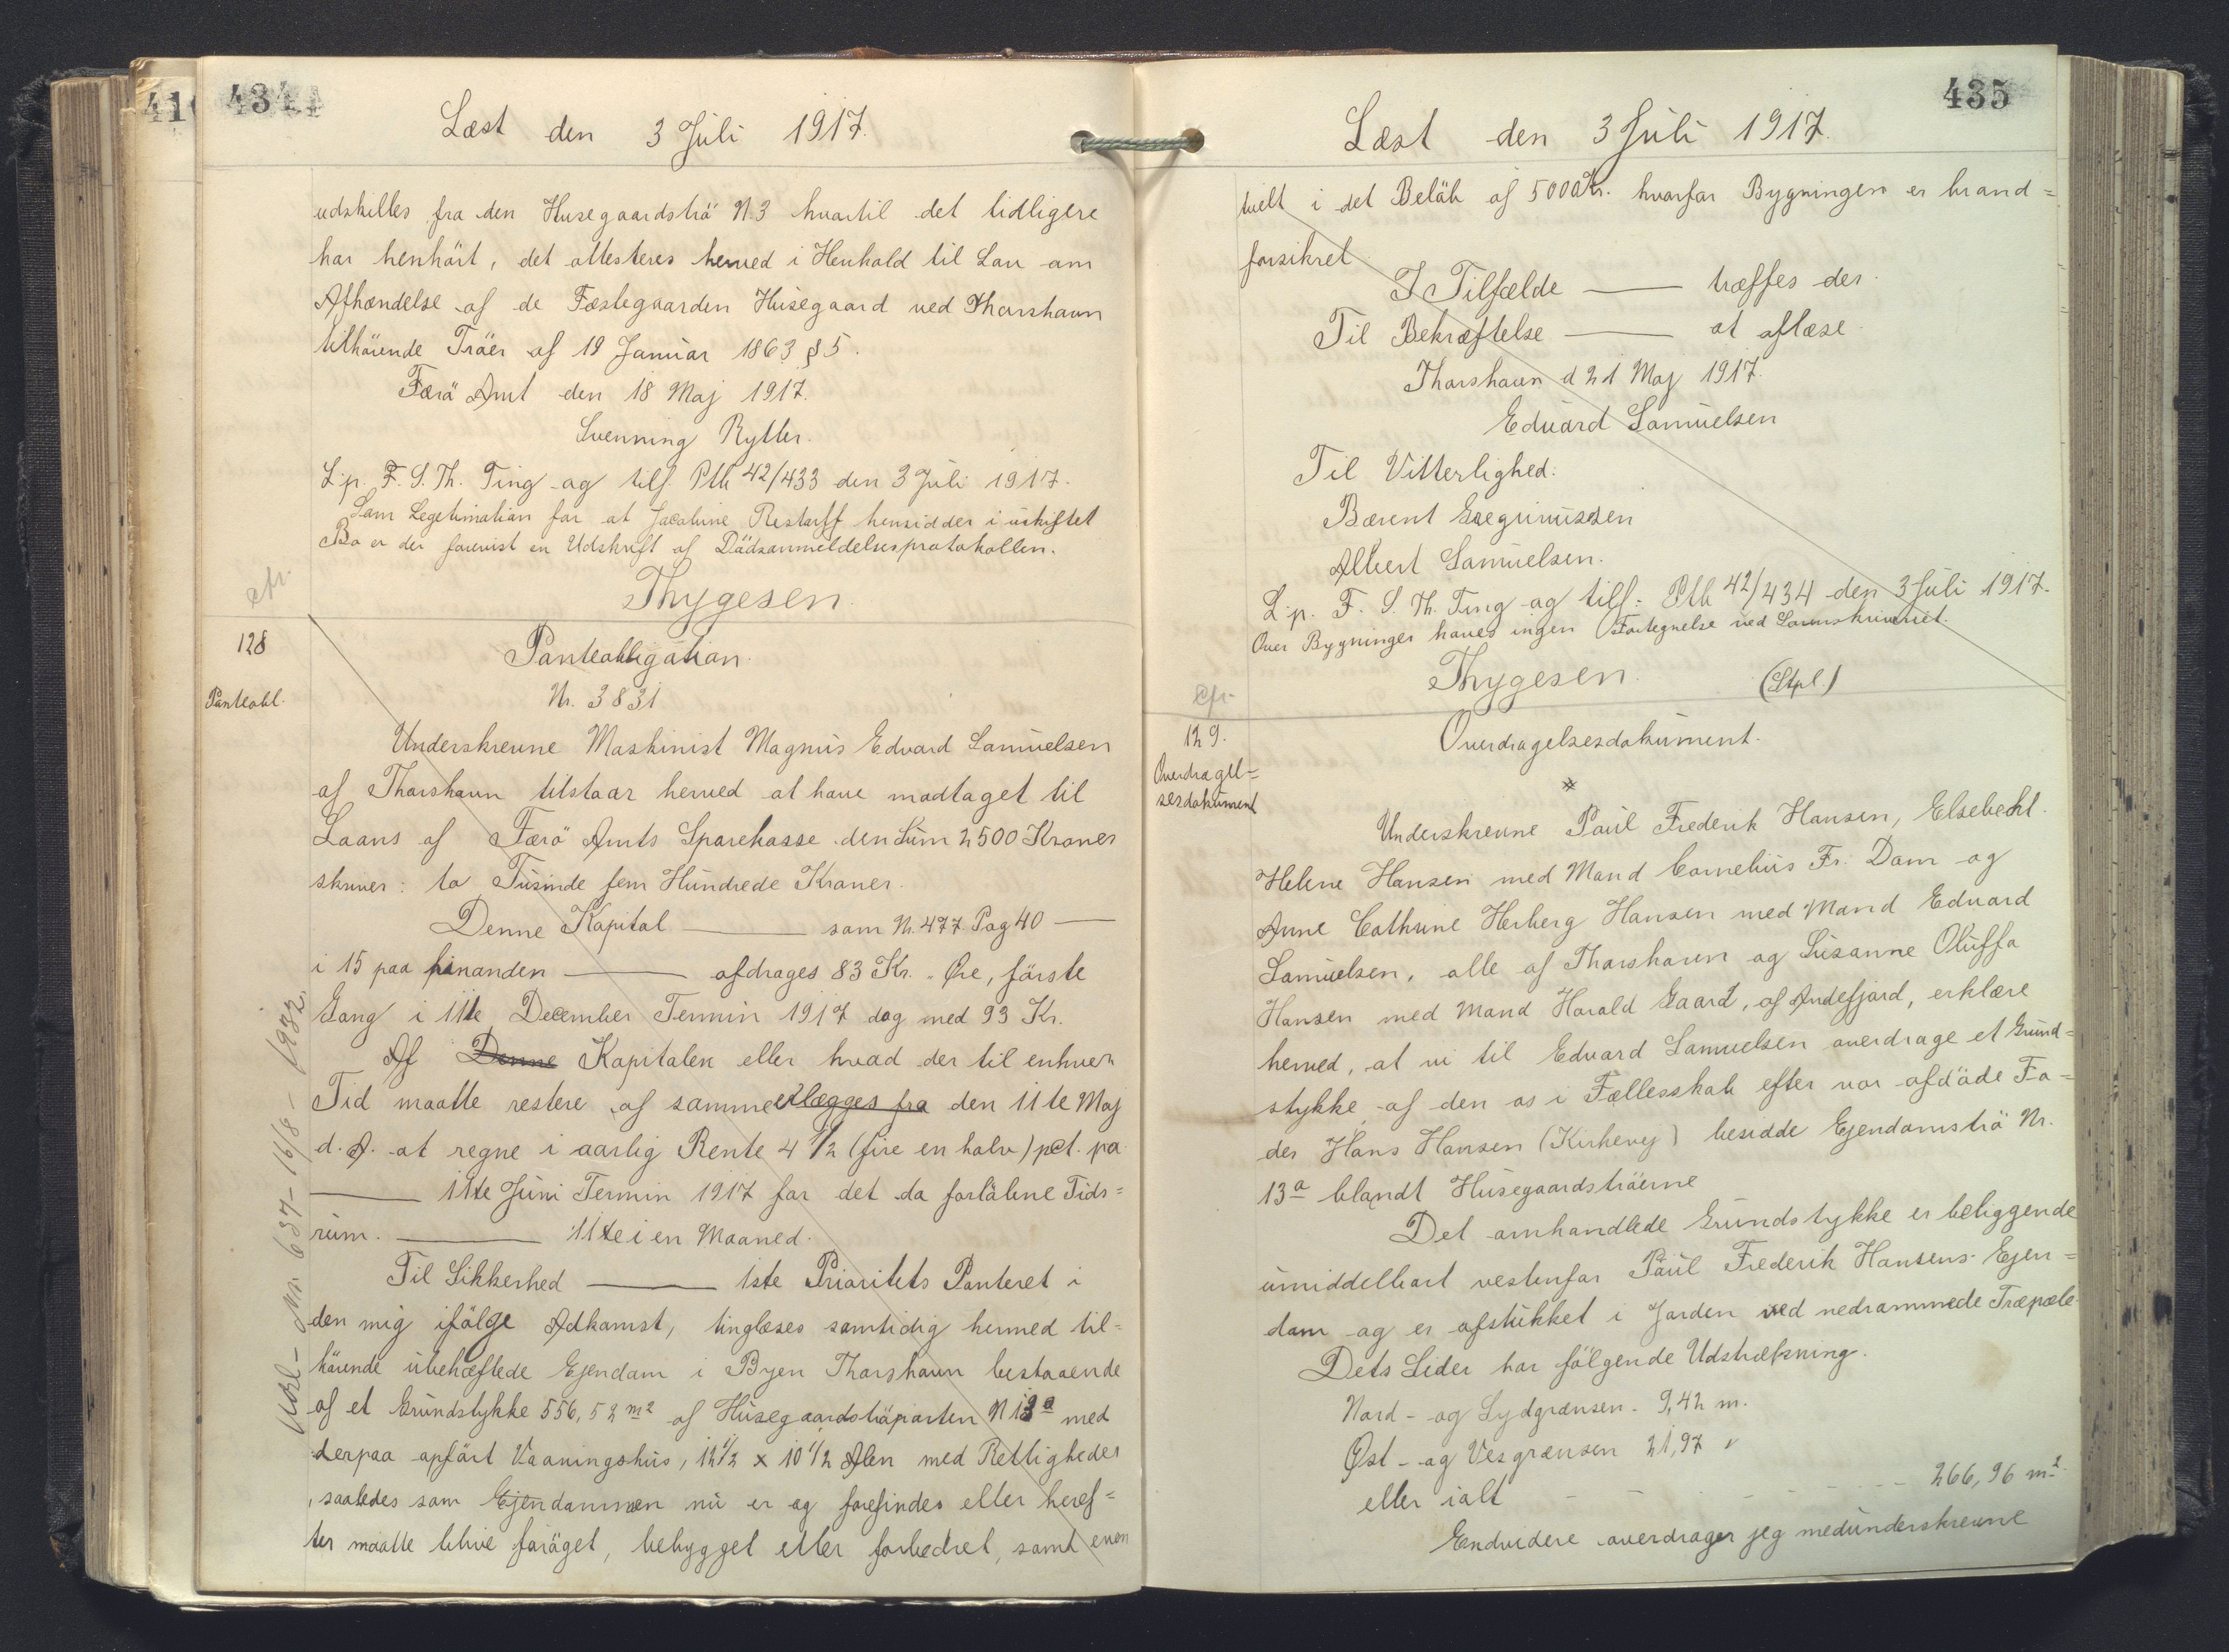 434
Læst den 3 Juli 1917.
udskilles fra den Husegaardströ N. 3 hvortil det tidligere
har henhört, det attesteres herved i Henhold til Lov om
Afhændelse af de Fæstegaarden Husegaard ved Thorshavn
tilhörende Tröer af 19 Januar 1863 § 5.
Færö Amt den 18 Maj 1917.
Svenning Rytter.
L. p. F. S. Th. Ting og tilf. Ptb 42/433 den 3 Juli 1917.
Som Legetimation for at Jacobine Restorff hensidder i uskiftet
Bo er der forevist en Udskrift af Dödsanmeldelsesprotokollen.
Thygesen
cfr.
128
Panteobl.
Panteobligation.
Nr. 3831
Underskrevne Maskinist Magnus Edvard Samuelsen
af Thorshavn tilstaar herved at have modtaget til
Laans af Færö Amts Sparekasse den Sum 2500 Kroner
skriver: to Tusinde fem Hundrede Kroner.
Denne Kapital ——— som N. 477. Pag 40 —
i 15 paa hinanden ——— afdrages 83 Kr. - Öre, förste
Gang i 11te December Termin 1917 dog med 93 Kr.
Af Denne Kapitalen eller hvad der til enhver
Tid maatte restere af samme erlægges fra den 11te Maj
d. A. at regne i aarlig Rente 4 1/2 (fire en halv) pct. pa
——— 11te Juni Termin 1917 for det da forløbne Tids=
rum. ——— 11te i en Maaned.
Til Sikkerhed ——— 1ste Prioritets Panteret i
den mig ifölge Adkomst, tinglæses samtidig hermed til=
hörende übehæftede Ejendom i Byen Thorshavn bestaaende
af et Grundstykke 556,52 m2 af Husegaardströparten N 13a med
derpaa opfört Vaaningshus, 12 1/2 x 10 1/2 Alen med Rettigheder
, saaledes som Ejendommen nu er og forefindes eller heref=
ter maatte blive foröget, bebygget eller forbedret, samt even
Udsl - Nr. 637 - 16/8 - 1932.
435
Læst den 3 Juli 1917.
tuelt i det Beløb af 5000 Kr. hvorfor Bygningen er brand=
forsikret.
I Tilfælde ——— træffes der.
Til Bekræftelse ——— at aflæse.
Thorshavn d 21 Maj 1917.
Edvard Samuelsen
Til Vitterlighed:
Bærent
Albert Samuelsen.
L. p. F. S. Th. Ting og tilf: Ptb 42/434 den 3 Juli 1917.
Over Bygninger haves ingen Fortegnelse ved Sorenskriveriet.
Thygesen. (Stpl.)
cfr.
129.
Overdragel=
sesdokument
Overdragelsesdokument.
Underskrevne Poul Frederik Hansen, Elsebeth
Helene Hansen med Mand Cornelius Fr. Dam og
Anne Cathrine Herberg Hansen med Mand Edvard
Samuelsen, alle af Thorshavn og Susanne Oluffa
Hansen med Mand Harald Gaard, af Andefjord, erklære
herved, at vi til Edvard Samuelsen overdrage et Grund=
stykke af den os i Fællesskab efter vor afdöde Fa=
der Hans Hansen (Kirkevej) besidde Ejendomströ Nr.
13a blandt Husegaardströerne
Det omhandlede Grundstykke er beliggende
umiddelbart vestenfor Poul Frederik Hansens Ejen=
dom og er afstukket i Jorden ved nedrammede Træpæle
Dets Sider har fölgende Udstrækning.
Nord- og Sydgrænsen - 9,42 m.
Øst- og Vesgrænsen 21,97 v
eller ialt - - - - - - 266,96 m2.
Endvidere overdrager jeg medunderskrevne